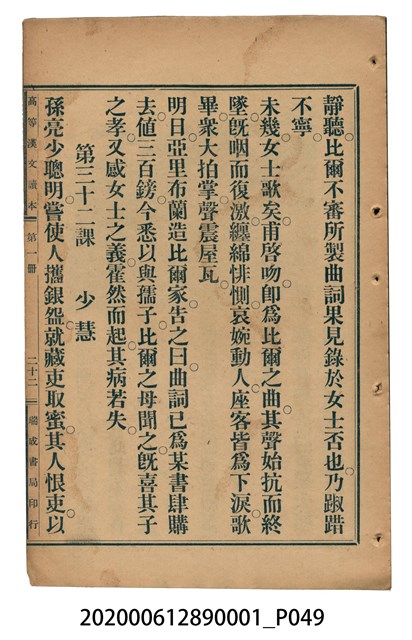 靜聽。比爾不審所製曲詞果見錄於女士否也。乃踧踖
不寧。
未幾女士歌矣。甫啓吻卽爲比爾之曲。其聲始抗而終
墜。旣咽而復激。纏綿悱惻。哀婉動人。座客皆爲下淚。歌
畢。衆大拍掌。聲震屋瓦。
明日亞里布蘭造比爾家。告之曰。曲詞已爲某書肆購
去。値三百鎊。今悉以與孺子。比爾之母聞之。旣喜其子
之孝。又感女士之義。霍然而起。其病若失。
第三十二課 少慧
孫亮少聰明。嘗使人攜銀盌就藏吏取蜜。其人恨吏。以
高等漢文讀本 第一册 二十二 瑞成書局印行
202000612890001_P049